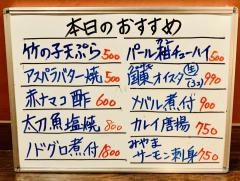 本日のおすすめ
竹の子天ぷら 500
アスパラバター焼 500
赤ナマコ酢 600
太刀魚塩焼 800
ノドグロ煮付 1800
パール柑チューハイ 500
オイスター 生 (3コ) 990
メバル煮付 900
カレイ唐揚 750
みやま
サーモン刺身 750